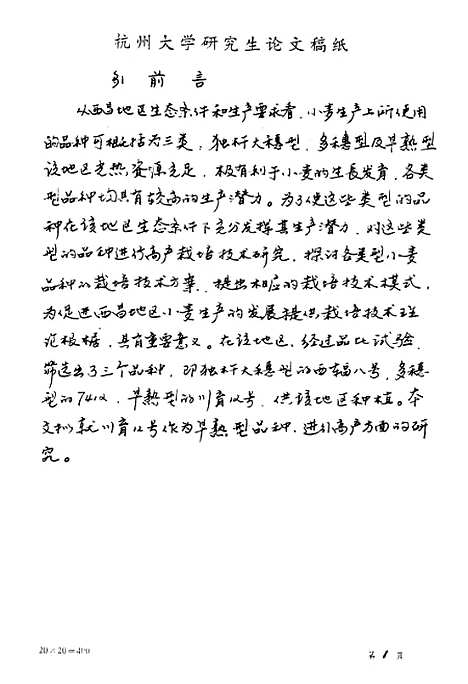 杭州大学研究生论文稿纸
引 前 言
从西昌地区生态条件和生产要求看,小麦生产上所使用
的品种可概括为三类,独杆大穗型,多穗型及早熟型
该地区光热资源充足,极有利于小麦的生长发育,各类
型品种均具有较高的生产潜力。为了使这些类型的品
种在该地区生态条件下充分发挥其生产潜力,对这些类
型的品种进行高产栽培技术研究,探讨各类型小麦
品种的栽培技术方案,提出相应的栽培技术模式,
为促进西昌地区小麦生产的发展提供栽培技术理
论根据,具有重要意义。在该地区,经过品比试验,
筛选出了三个品种,即独杆大穗型的西辐八号,多穗
型的 ,早熟型的川育 号,供该地区种植。本
文拟就川育 号作为早熟型品种,进行高产方面的研
究。
20×20=400
第 1 页